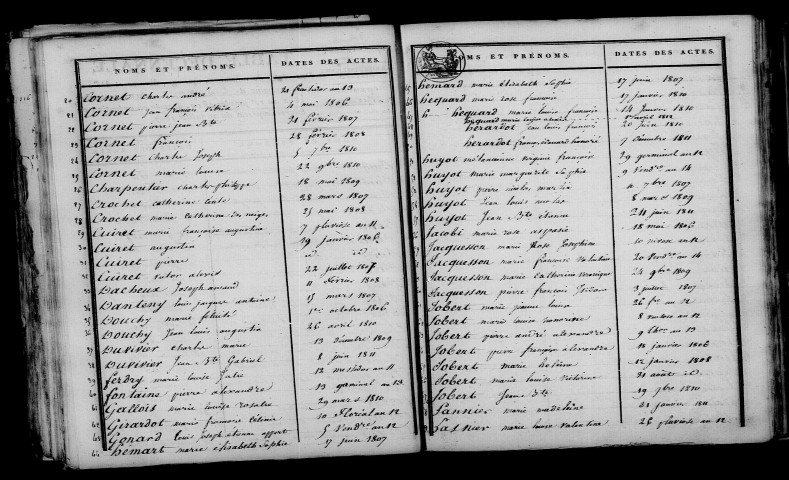 NOMS ET PRÉNOMS. DATES DES ACTES.
20 Cornet charle andré 21 an 13
21 Cornet jean françois 4 mai 1806
Cornet pierre jean Bte 21 février 1807
Cornet françois 28 février 1808
Cornet charle Joseph 5 7bre 1810
Cornet marie louise 22 9bre 1810
Charpentier charle philippe 18 mai 1809
Crochet catherine 28 mars 1807
Crochet marie catherine des neiges 25 mai 1808
Cuiret marie françoise augustine 7 pluviose an 11
Cuiret augustin 29 janvier 1806
Cuiret pierre id id
Cuiret victor alexis 22 juillet 1807
Dacheux Joseph armand 11 février 1808
Danteny louis jacques antoine 15 mars 1807
Douchy marie félicité 1er octobre 1806
Douchy jean louis augustin 26 avril 1810
Duvivier charle marie 13 Décembre 1809
Duvivier Jean Bte Gabriel 8 juin 1811
ferdry marie louise Julie 12 messidor an 11
fontaine pierre alexandre 13 germinal an 13
Gallois marie louise rosalie 29 mars 1810
Girardot marie françoise 10 floréal an 12
Gonard louis joseph étienne 5 Vendre an 12
hemart marie élisabeth Sophie 17 juin 1807
NOMS ET PRÉNOMS. DATES DES ACTES.
hemard marie élisabeth Sophie 17 juin 1807
hecquard marie rose françoise 17 janvier 1810
hecquard marie louise françoise 14 janvier 1810
hecquard marie
herardot jean louis françois 20 juin 1810
herardot françois 7 Décembre 1811
huyot virginie françoise 29 germinal an 12
huyot marie marguerite Sophie 9 Vendre an 14
huyot pierre nicolas 11 7bre 1807
huyot jean louis nicolas 8 mars 1809
huyot Jean Bte étienne 24 juin 1810
Jacobé marie rose aspasie 18 mai 1806
Jacquesson marie Rose Joséphine 10 nivose an 12
Jacquesson marie françoise 20 Vendre an 14
Jacquesson marie catherine véronique 24 9bre 1809
Jacquesson pierre françois isidore 3 juillet 1807
Jobert marie louise 26 an 12
Jobert marie louise honorine 8 an 12
Jobert pierre andré alexandre 9 an 13
Jobert pierre françois alexandre 18 janvier 1806
Jobert marie hélène 12 janvier 1808
Jobert marie louise victorine 31 août id.
Jobert Jean Bte 19 7bre 1810
Lannier marie madeleine 21 janvier 1811
Lasnier marie louise valentine 26 pluviose an 12